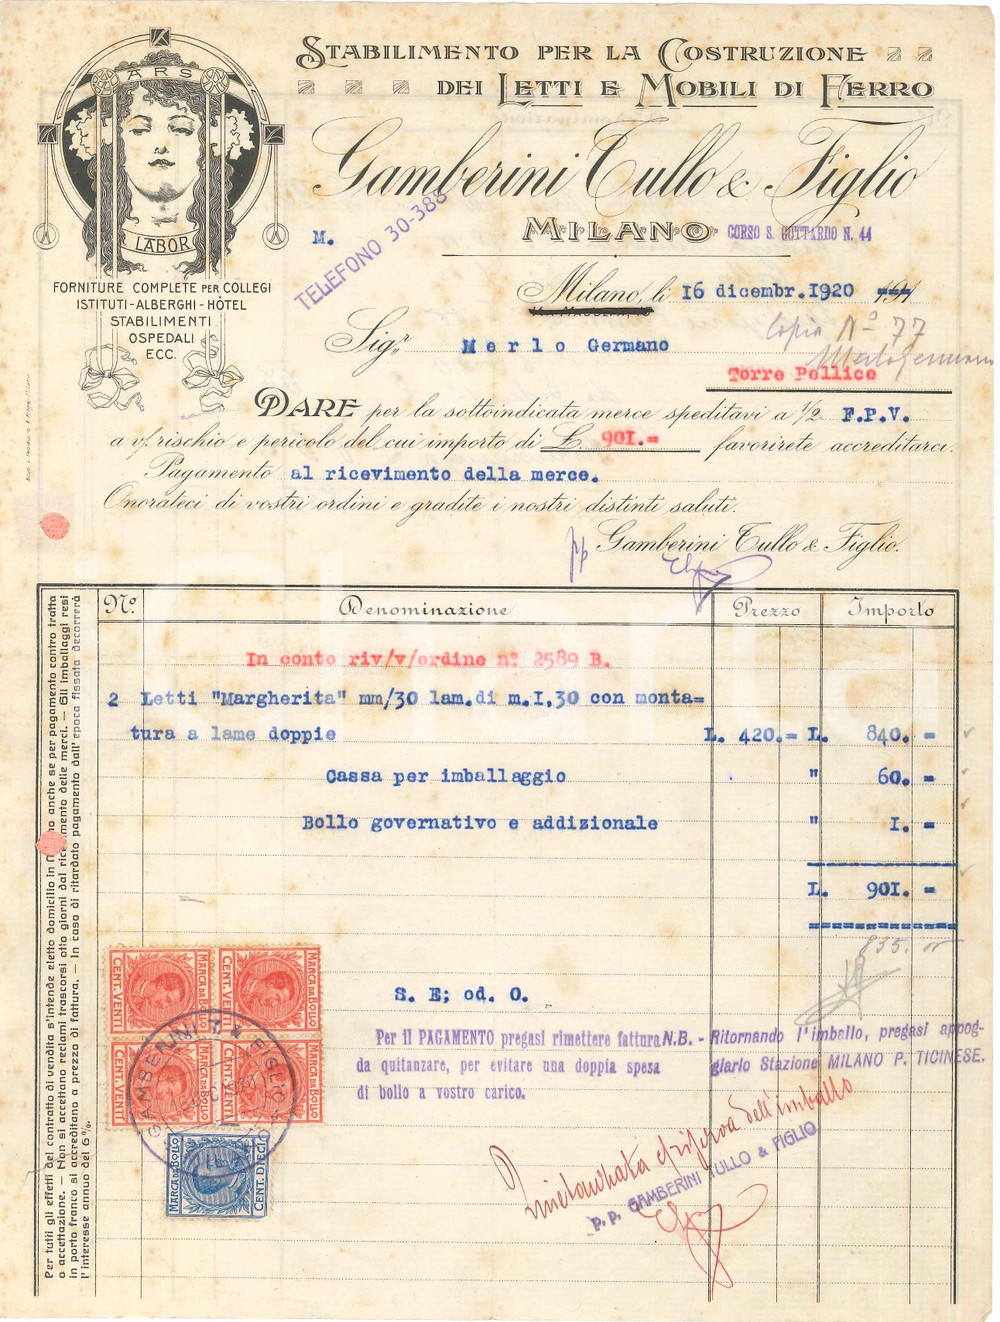 STABILIMENTO PER LA COSTRUZIONE
DEI LETTI E MOBILI DI FERRO
Gamberini Tullo & Figlio
MILANO CORSO S. GOTTARDO N. 44
ARS
LABOR
FORNITURE COMPLETE PER COLLEGI
ISTITUTI-ALBERGHI-HÔTEL
STABILIMENTI
OSPEDALI
ECC.
M.
TELEFONO 30-388
Milano, li 16 dicembr. 1920 191
Copia Nº 77
Merlo Germano
Sigr. Merlo Germano
Torre Pellice
DARE per la sottoindicata merce speditavi a 1/2 F.P.V.
a v/ rischio e pericolo del cui importo di £. 901.= favorirete accreditarci.
Pagamento al ricevimento della merce.
Onorateci di vostri ordini e gradite i nostri distinti saluti.
pp Gamberini Tullo & Figlio.
Nº. Denominazione Prezzo Importo
In conto riv/v/ordine nº 2589 B.
2 Letti "Margherita" mm/30 lam.di m.I,30 con monta=
tura a lame doppie L. 420.= L. 840. =
Cassa per imballaggio " 60. =
Bollo governativo e addizionale " I. =
L. 901. =
835.
S. E; od. O.
Per il PAGAMENTO pregasi rimettere fattura
da quitanzare, per evitare una doppia spesa
di bollo a vostro carico.
N.B. - Ritornando l'imballo, pregasi appog-
giarlo Stazione MILANO P. TICINESE.
MARCA DA BOLLO
CENT. VENTI
MARCA DA BOLLO
CENT. VENTI
MARCA DA BOLLO
CENT. VENTI
MARCA DA BOLLO
CENT. VENTI
MARCA DA BOLLO
CENT. DIECI
GAMBERINI T. & FIGLIO
dell'imballo
p.p. GAMBERINI TULLO & FIGLIO
Per tutti gli effetti del contratto di vendita s'intende eletto domicilio in anche se per pagamento contro tratta
o accettazione. — Non si accettano reclami trascorsi otto giorni dal ricevimento delle merci. — Gli imballaggi resi
in porto franco si accreditano a prezzo di fattura. — In caso di ritardato pagamento dall' epoca fissata decorrerà
l'interesse annuo del 6 %.